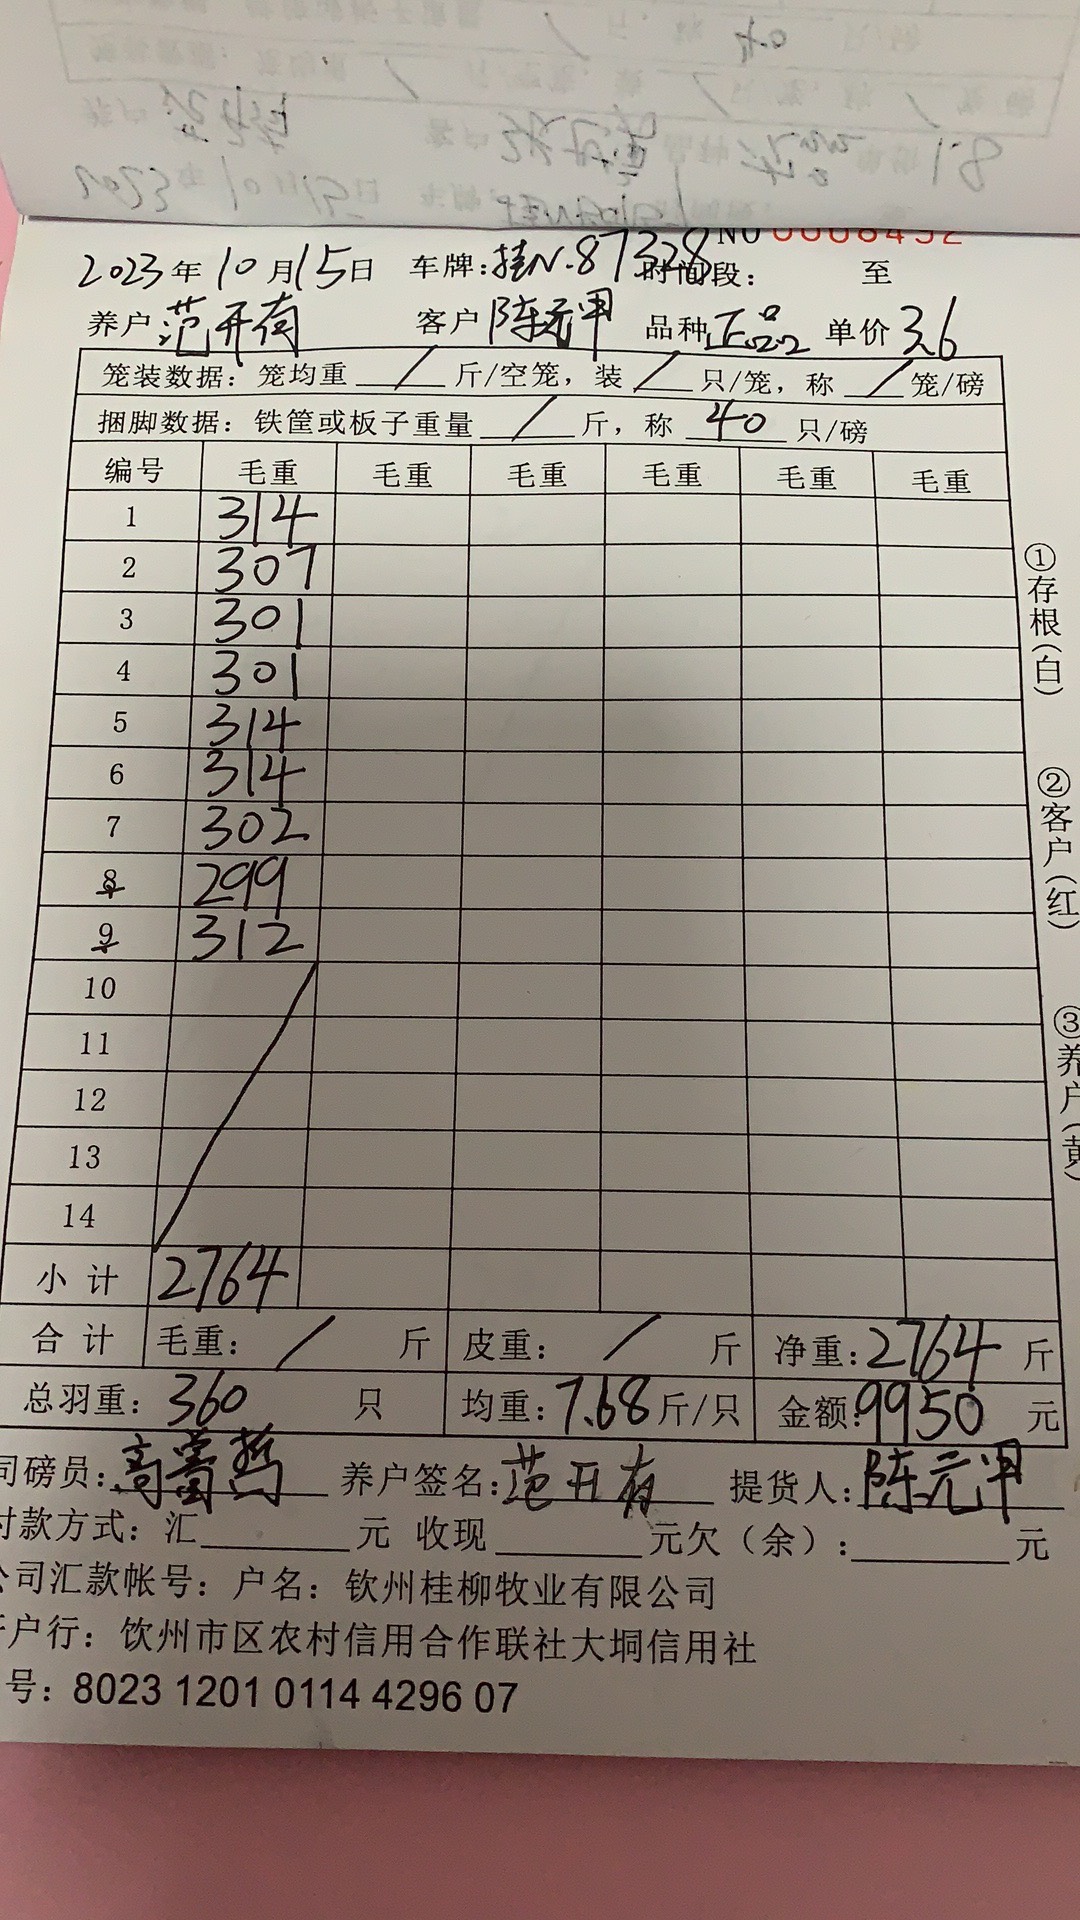 NO 0008452
2023年10月15日 车牌:桂N.87328 时间段: 至
养户 范开有 客户 陈元甲 品种 正品2 单价 3.6
笼装数据:笼均重 / 斤/空笼,装 / 只/笼,称 / 笼/磅
捆脚数据:铁筐或板子重量 / 斤,称 40 只/磅
编号 毛重 毛重 毛重 毛重 毛重 毛重
1 314
2 307
3 301
4 301
5 314
6 314
7 302
8 299
9 312
10
11
12
13
14
小计 2764
合计 毛重: / 斤 皮重: / 斤 净重:2764 斤
总羽重:360 只 均重:7.68 斤/只 金额:9950 元
司磅员: 养户签名:范开有 提货人:陈元甲
付款方式:汇 元 收现 元欠(余): 元
公司汇款帐号:户名:钦州桂柳牧业有限公司
开户行:饮州市区农村信用合作联社大垌信用社
号:8023 1201 0114 4296 07
①存根(白)
②客户(红)
③养户(黄)